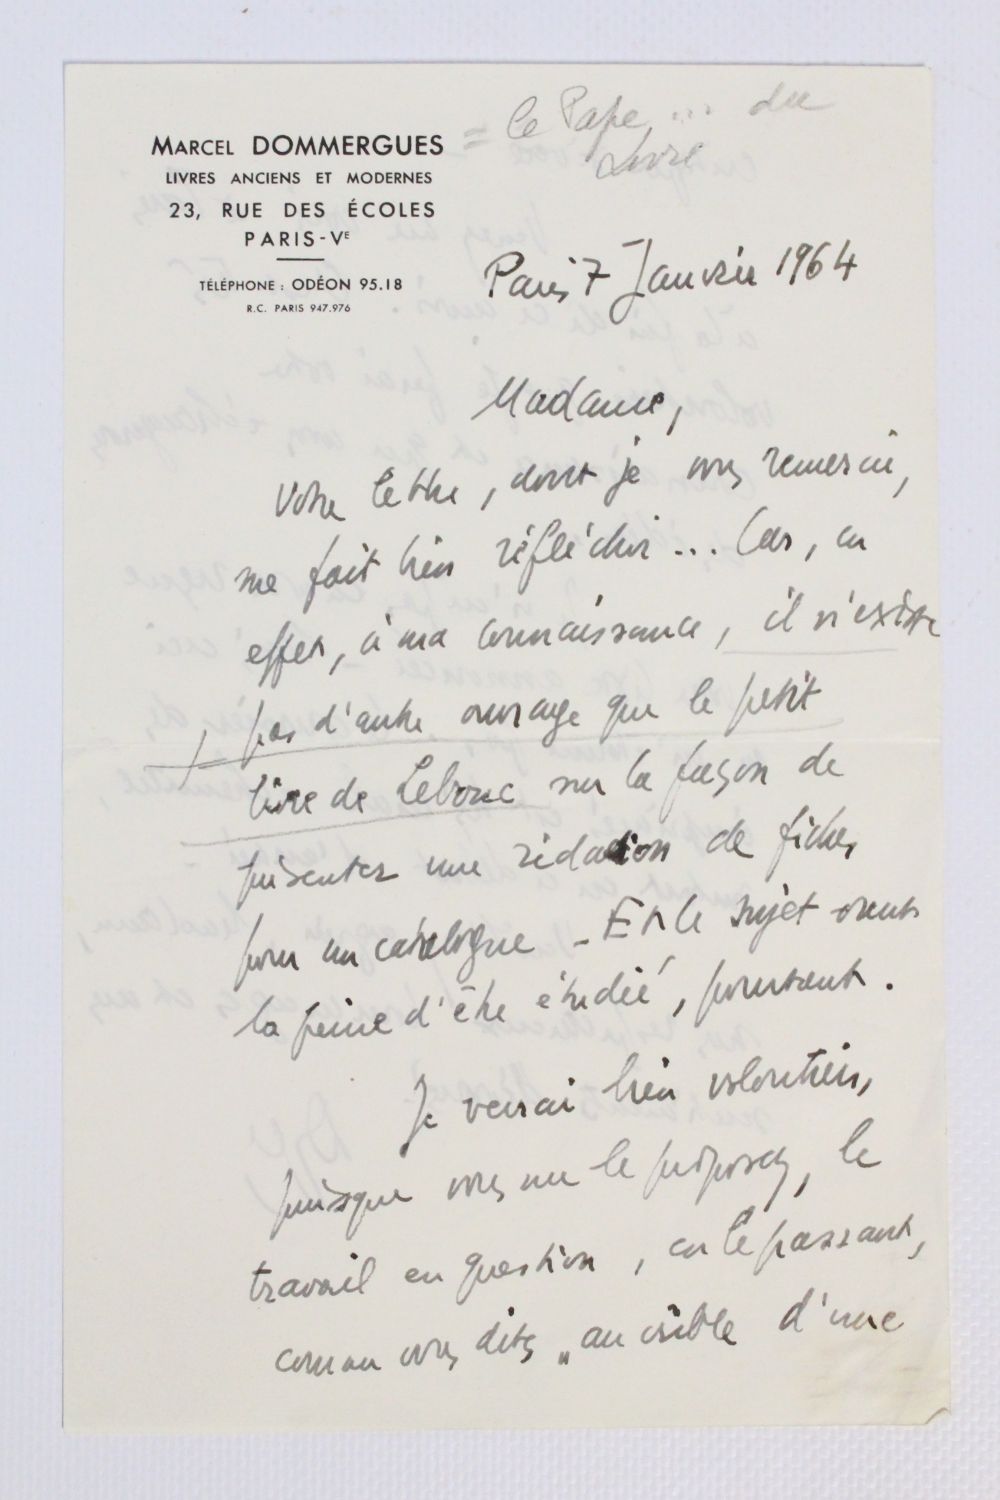 MARCEL DOMMERGUES
LIVRES ANCIENS ET MODERNES
23, RUE DES ÉCOLES
PARIS-VE
TÉLÉPHONE : ODÉON 95.18
R.C. PARIS 947.976
= le Pape ... du
Livre
Paris 7 Janvier 1964
Madame,
Votre lettre, dont je vous remercie,
me fait bien réfléchir ... Car, en
effet, à ma connaissance, il n'existe
pas d'autre ouvrage que le petit
livre de Lebouc sur la façon de
présenter une rédaction de fiches
pour un catalogue - Et le sujet vaut
la peine d'être étudié, pourtant.
Je verrai bien volontiers,
puisque vous me le proposez, le
travail en question, en le passant,
comme vous dites „ au crible d'une